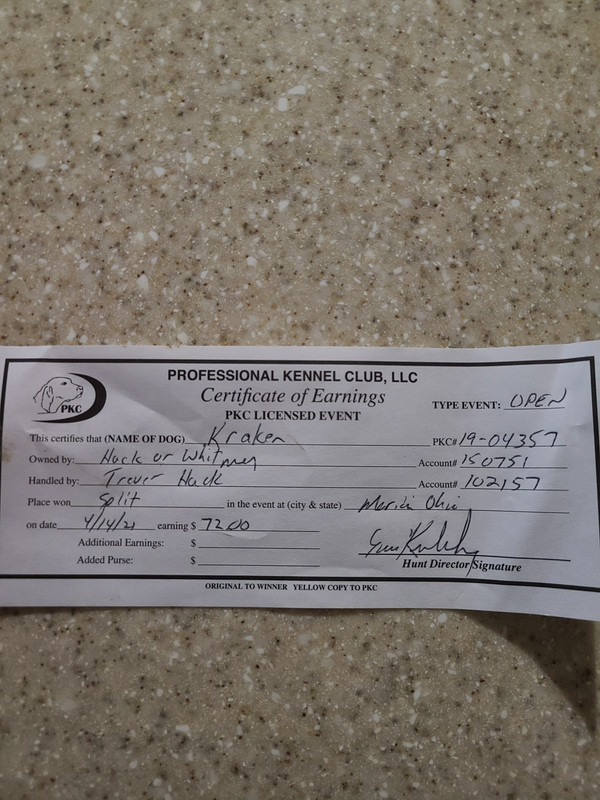 PROFESSIONAL KENNEL CLUB, LLC
Certificate of Earnings
PKC LICENSED EVENT
TYPE EVENT: OPEN
PKC
This certifies that (NAME OF DOG) Kraken PKC# 19-04357
Owned by: Hack or Whitney Account# 150751
Handled by: Trevir Hack Account# 102157
Place won Split in the event at (city & state) Ohio
on date 4/14/21 earning $ 72.00
Additional Earnings: $
Added Purse: $
Hunt Director Signature
ORIGINAL TO WINNER YELLOW COPY TO PKC